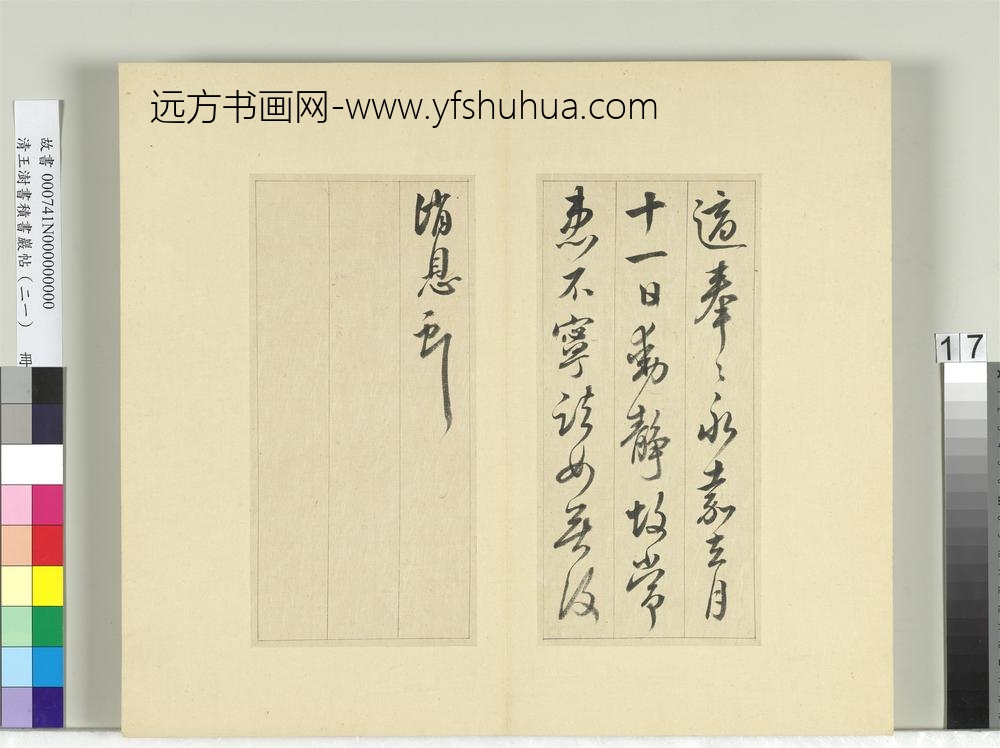 远方书画网-www.yfshuhua.com
適奉〻永嘉去月
十一日動靜故常
患不寧諸女無復
消息
故書 000741N000000000
清王澍書積書巖帖(二一) 冊
17